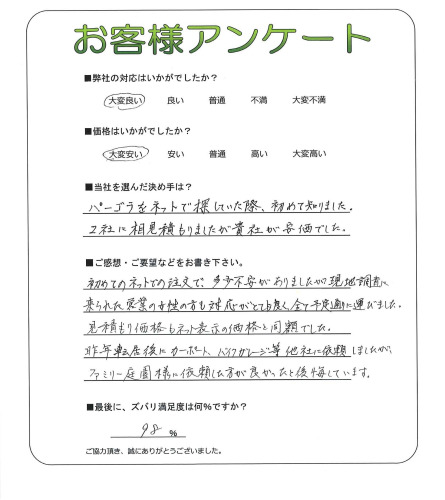 お客様アンケート
■弊社の対応はいかがでしたか？
大変良い 良い 普通 不満 大変不満
■価格はいかがでしたか？
大変安い 安い 普通 高い 大変高い
■当社を選んだ決め手は？
パーゴラをネットで探していた際、初めて知りました。
2社に相見積もりましたが貴社が安価でした。
■ご感想・ご要望などをお書き下さい。
初めてのネットでの注文で、多少不安がありましたが現地調査に
来られた営業の女性の方も対応がとても良く全て予定通りに運びました。
見積もり価格もネット表示の価格と同額でした。
昨年転居後にカーポート、バイクガレージ等他社に依頼しましたが、
ファミリー庭園様に依頼した方が良かったと後悔しています。
■最後に、ズバリ満足度は何％ですか？
98 ％
ご協力頂き、誠にありがとうございました。